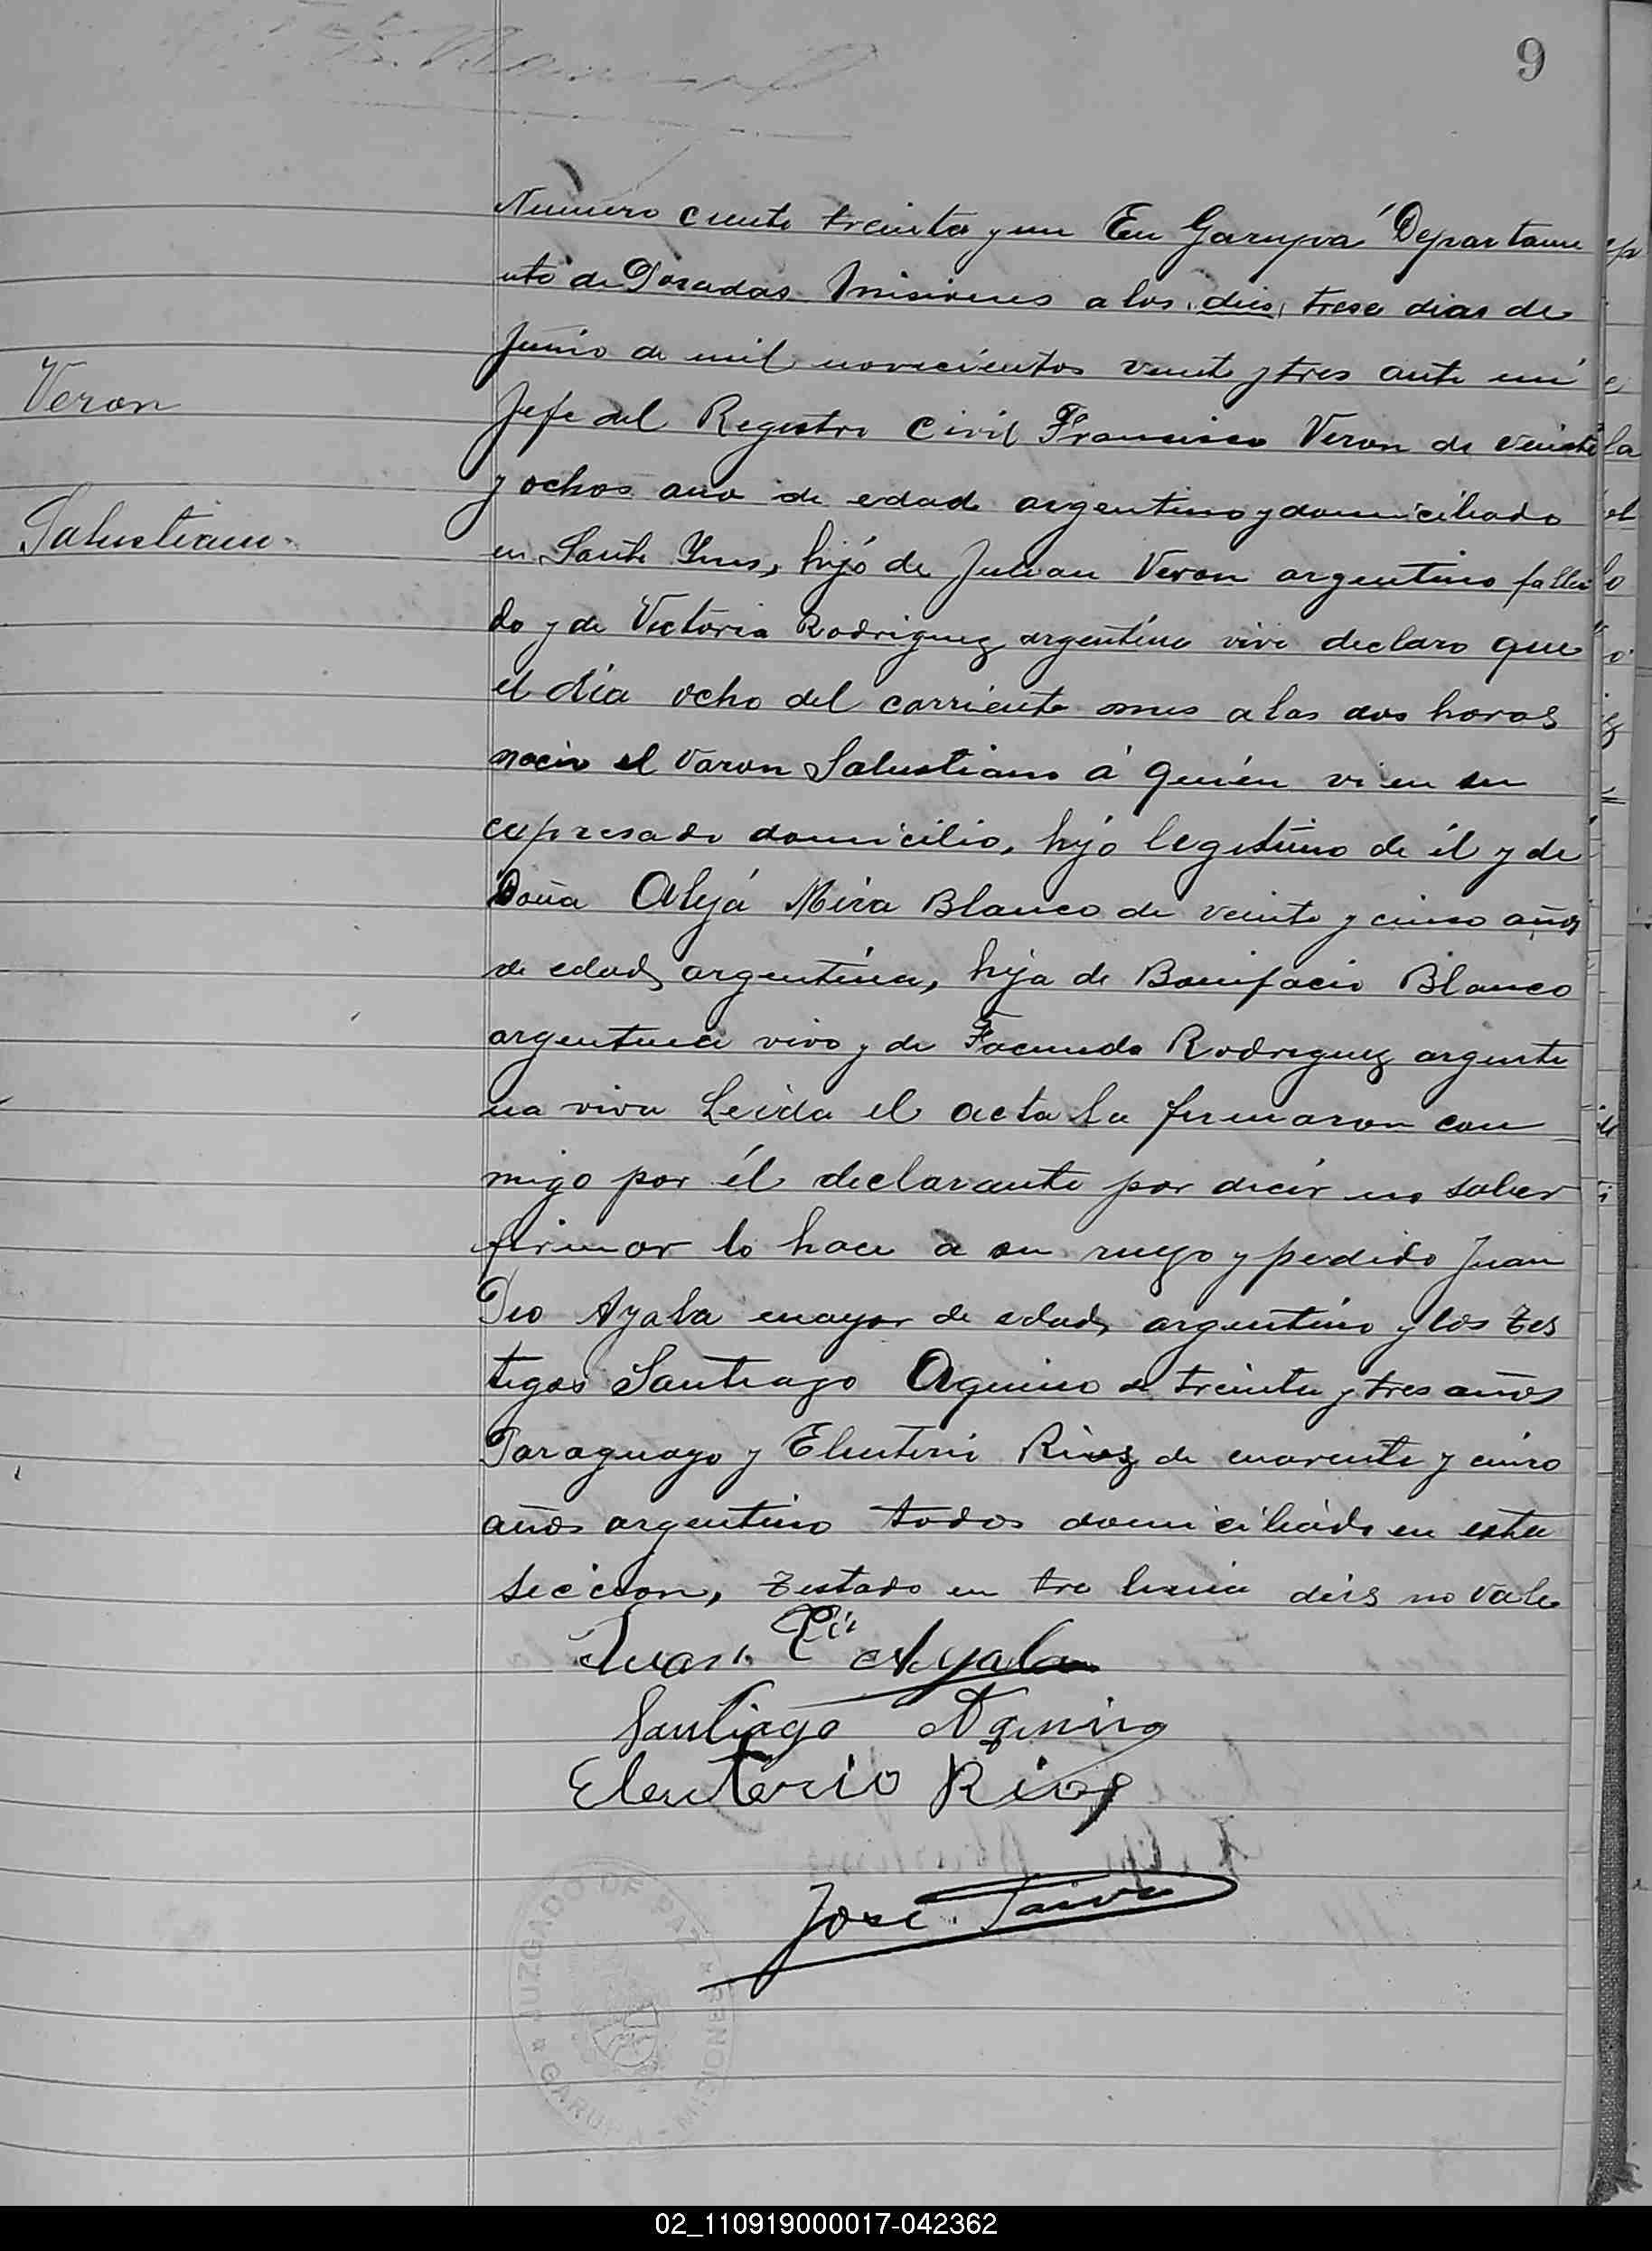 9
Numero ciento treinta y un En Garupá Departame
nto de Posadas Misiones a los dies trese dias de
Junio de mil novecientos veinte y tres ante mi
Veron
Jefe del Registro Civil Francisco Veron de veinte
y ochos año de edad argentino y domiciliado
Salustiano
en Santa Ynes, hijó de Julian Veron argentino falleci
do y de Victoria Rodriguez argentina vive declaro que
el dia ocho del corriente mes a las dos horas
nacio el varon Salustiano á quien vi en su
expresado domicilio, hijó legitimo de él y de
Doña Alejá Mira Blanco de veinte y cinco años
de edad argentina, hija de Bonifacio Blanco
argentino vivo y de Facunda Rodriguez argenti
na viva Leida el acta la firmaron con
migo por él declarante por decir no saber
firmar lo hace a su ruego y pedido Juan
Pio Ayala mayor de edad argentino y los tes
tigos Santiago Aquino de treinta y tres años
Paraguayo y Eleuterio Rios de cuarenta y cinco
años argentino todos domiciliado en esta
seccion, testado en tre linia dies no vale
Juan Pio Ayala
Santiago Aquino
Eleuterio Rios
José Paiva
JUZGADO DE PAZ
GARUPA MISIONES
02_110919000017-042362